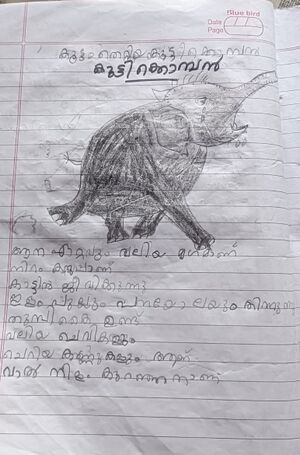 Blue bird
Date
Page
കൂട്ടം തെറ്റിയ കുട്ടിക്കൊമ്പൻ
കുട്ടിക്കൊമ്പൻ
ആന ഏറ്റവും വലിയ മൃഗമാണ്
നിറം കറുപ്പാണ്
കാട്ടിൽ ജീവിക്കുന്നു
പുല്ലും പനയോലയും തിന്നുന്നു
തുമ്പികൈ ഉണ്ട്
വലിയ ചെവികളും
ചെറിയ കണ്ണുകളും ആണ്
വാൽ നീളം കുറഞ്ഞതാണ്